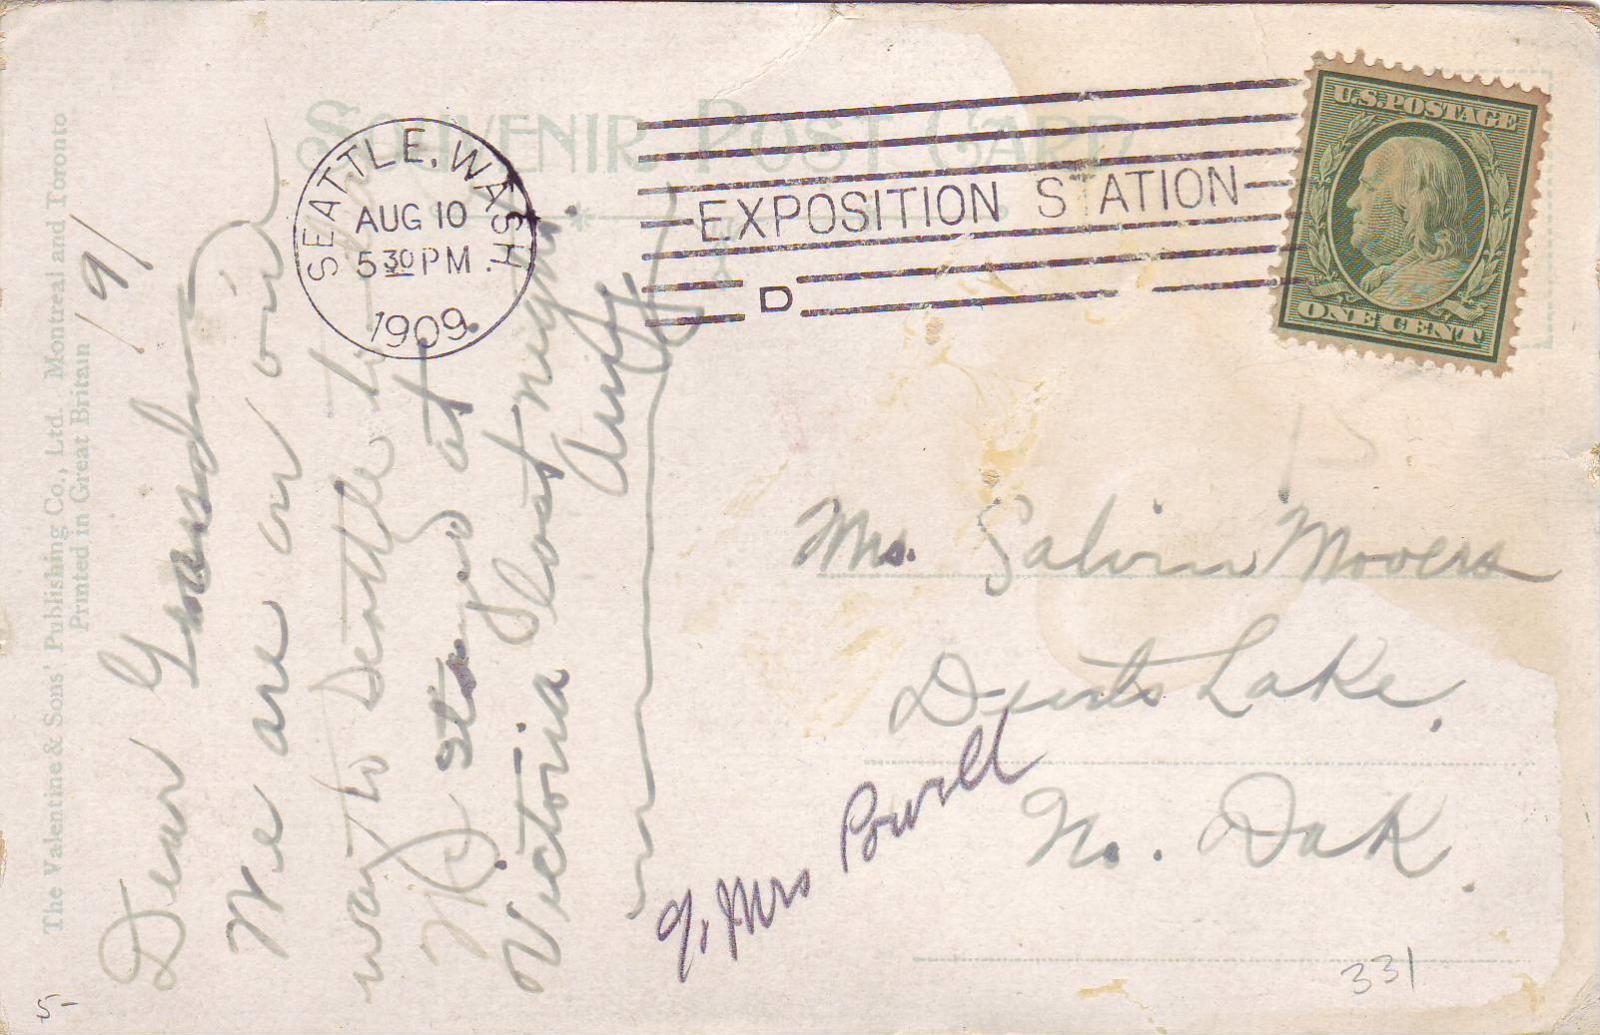 SOUVENIR POST CARD
SEATTLE, WASH.
AUG 10
5 30 PM
1909
EXPOSITION STATION
D
U.S. POSTAGE
ONE CENT
The Valentine & Sons' Publishing Co., Ltd. Montreal and Toronto
Printed in Great Britain
191
Dear
We are on our
way to Seattle
We stayed at
Victoria last night.
Mrs. Salvin Mooers
Lake,
No. Dak.
Mrs Powell
331
5-